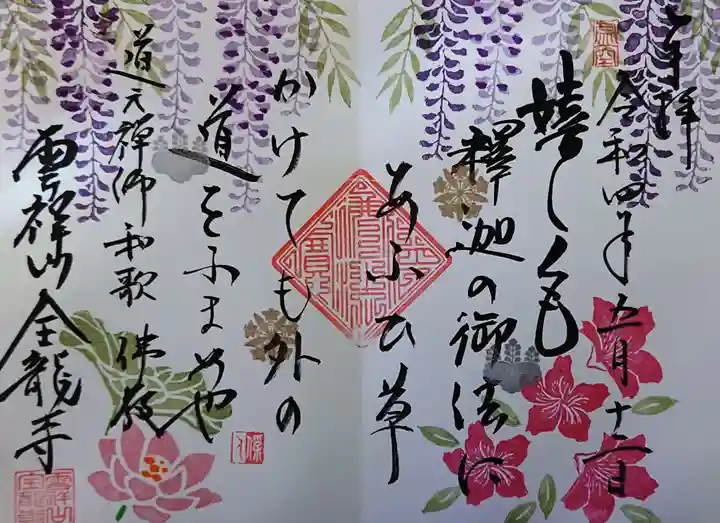 奉拝
令和四年五月十二日
嬉しくも
釋迦の御法に
あふひ草
かけても外の
道をふまめや
道元禅師和歌 佛教
雲祥山全龍寺